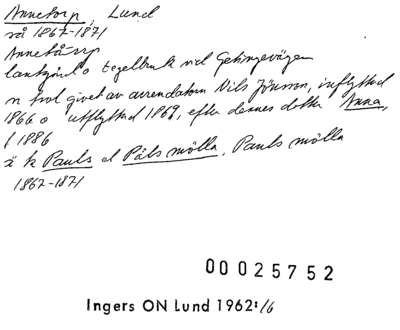 Annetorp, Lund
så 1867-1871
Annetåorp
lantgård o tegelbruk vid Getingevägen
n trol givet av arrendatorn Nils Jönsson, inflyttad
1866 o utflyttad 1869, efter dennes dotter Anna,
f 1886
ä k Pauls el Påls mölla, Pauls mölla
1867-1871
00025752
Ingers ON Lund 1962:16